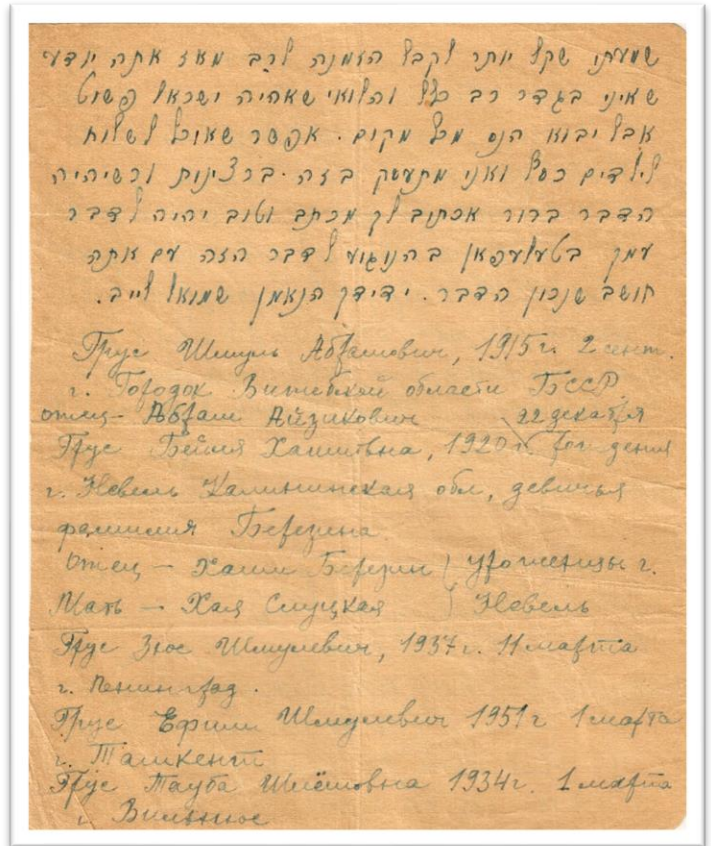 שמעתי שקל יותר לקבל הזמנה לרב מאז אתה יודע
שאיני בגדר רב כלל והלואי שאהיה ישראל פשוט
אבל יבוא הנס מכל מקום. אפשר שאוכל לשלוח
לילדים כסף ואני מתעסק בזה. ברצינות ורשיהיה
הדבר ברור אכתוב לך מכתב וטוב יהיה לדבר
עמך בטעלעפאן בהנוגוע לדבר הזה עם אתה
חושב שנכון הדבר. ידידך הנאמן שמואל לייב.
Грус Шмуль Абрамович, 1915 г. 2 сент.
г. Городок Витебской области БССР
отец – Абрам Айзикович 22 декабря
Грус Бейля Хаимовна, 1920 г. рождения
г. Невель Калининская обл, девичья
фамилия Березина
Отец – Хаим Березин } уроженцы г.
Мать – Хая Слуцкая } Невель
Грус Зюс Шмулевич, 1937 г. 11 марта
г. Ленинград.
Грус Ефим Шмулевич 1951 г 1 марта
г. Ташкент
Грус Тауба 1934 г. 1 марта
г. Вильнюс